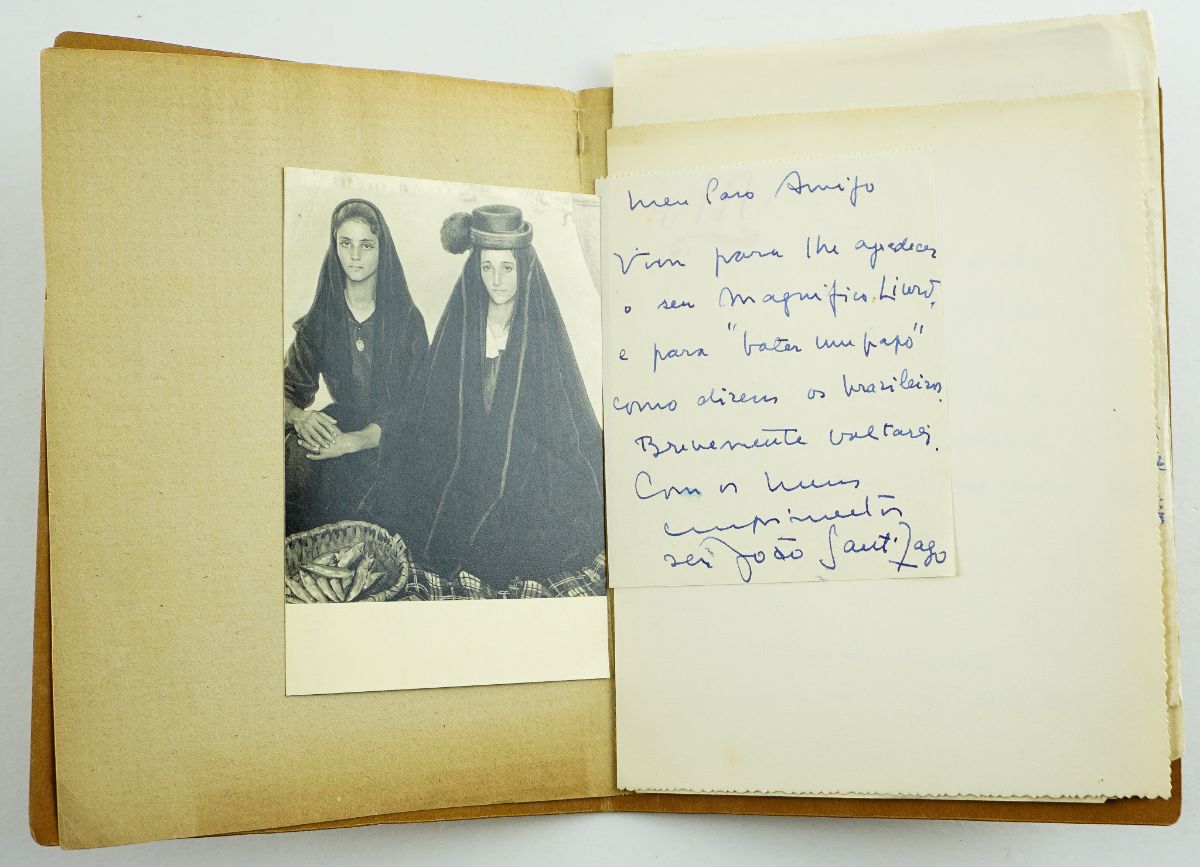 Meu Caro Amigo
Vim para lhe agradecer
o seu magnífico Livro,
e para "bater um papo"
como dizem os brasileiros.
Brevemente voltarei.
Com os meus
cumprimentos
seu João Santiago